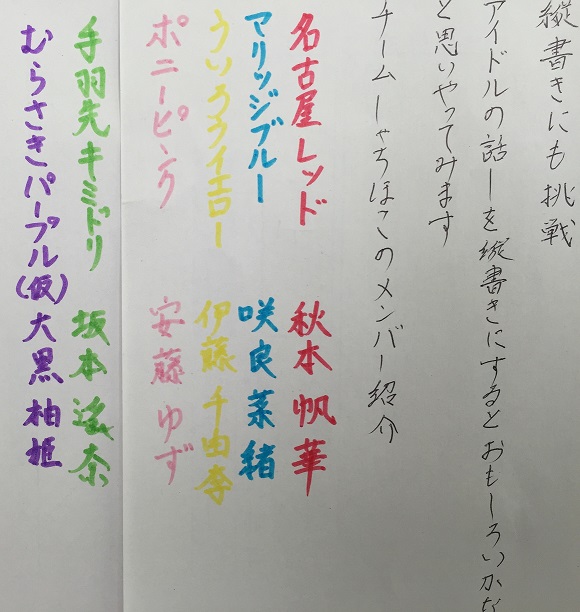 縦書きにも挑戦
アイドルの話しを縦書きにするとおもしろいかな
と思いやってみます
チームしゃちほこのメンバー紹介
名古屋レッド 秋本帆華
マリッジブルー 咲良菜緒
ういろうイエロー 伊藤千由李
ポニーピンク 安藤ゆず
手羽先キミドリ 坂本遥奈
むらさきパープル(仮)大黒柚姫